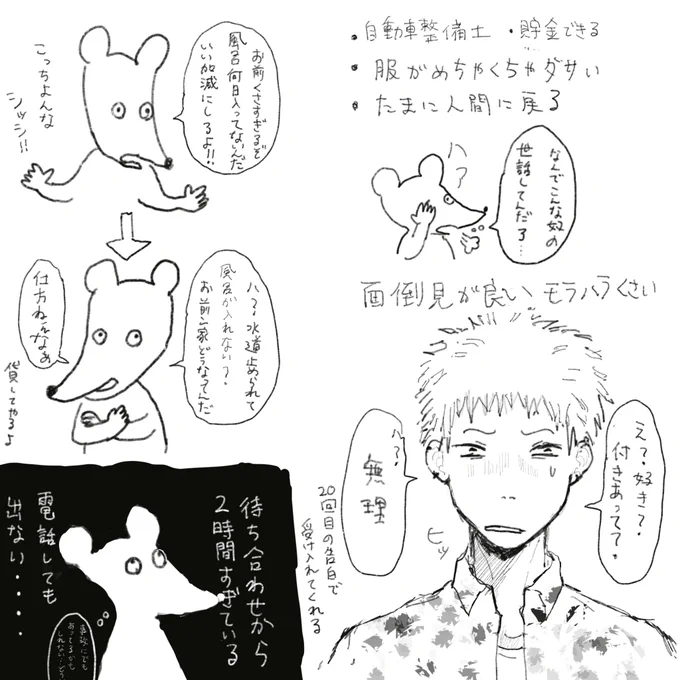 ・自動車整備士 ・貯金できる
・服がめちゃくちゃダサい
・たまに人間に戻る
お前くさすぎるぞ
風呂何日入ってないんだ
いい加減にしろよ!!
こっちよんな
シッシ!!
ハァ
なんでこんな奴の
世話してんだろ…
ハ?水道止められて
風呂が入れない?
お前家どうなってんだ
仕方ねえなぁ
貸してやるよ
面倒見が良い モラハラくさい
え?好き?
付きあって?
は?
無理
ヒッ
20回目の告白で
受け入れてくれる
待ち合わせから
2時間すぎている
電話しても
出ない・・・・
事故にでも
あってるかも
しれない…